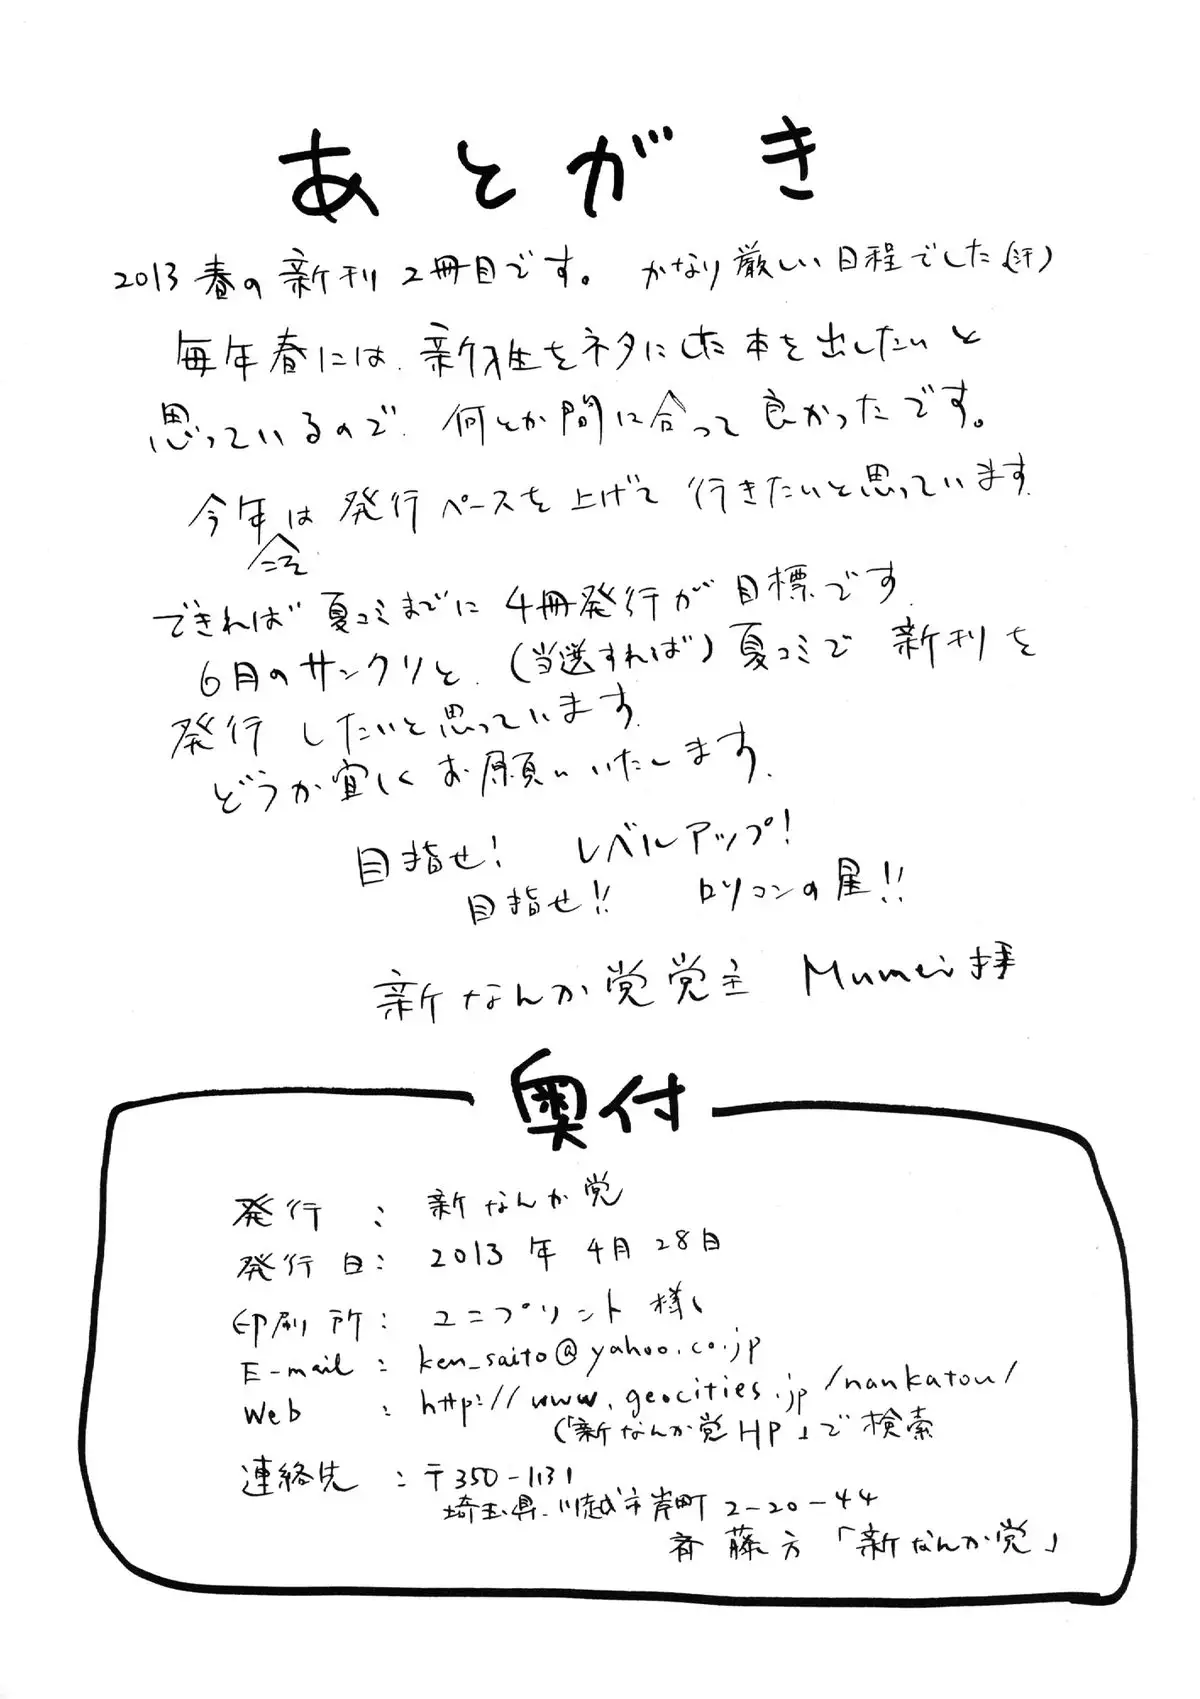 あとがき
2013春の新刊2冊目です。 かなり厳しい日程でした(汗)
毎年春には、新1年生をネタにした本を出したいと
思っているので、何とか間に合って良かったです。
今年こそは発行ペースを上げて行きたいと思っています。
できれば夏コミまでに4冊発行が目標です。
6月のサンクリと、(当選すれば)夏コミで新刊を
発行したいと思っています。
どうか宜しくお願いいたします。
目指せ! レベルアップ!
目指せ!! ロリコンの星!!
新なんか党党主 Mumei拝
奥付
発行 : 新なんか党
発行日: 2013年4月28日
印刷所: ユニプリント様
E-mail : ken_saito@yahoo.co.jp
Web : http://www.geocities.jp/nankatou/
(「新なんか党HP」で検索
連絡先 : 〒350-1131
埼玉県川越市岸町2-20-44
斉藤方「新なんか党」